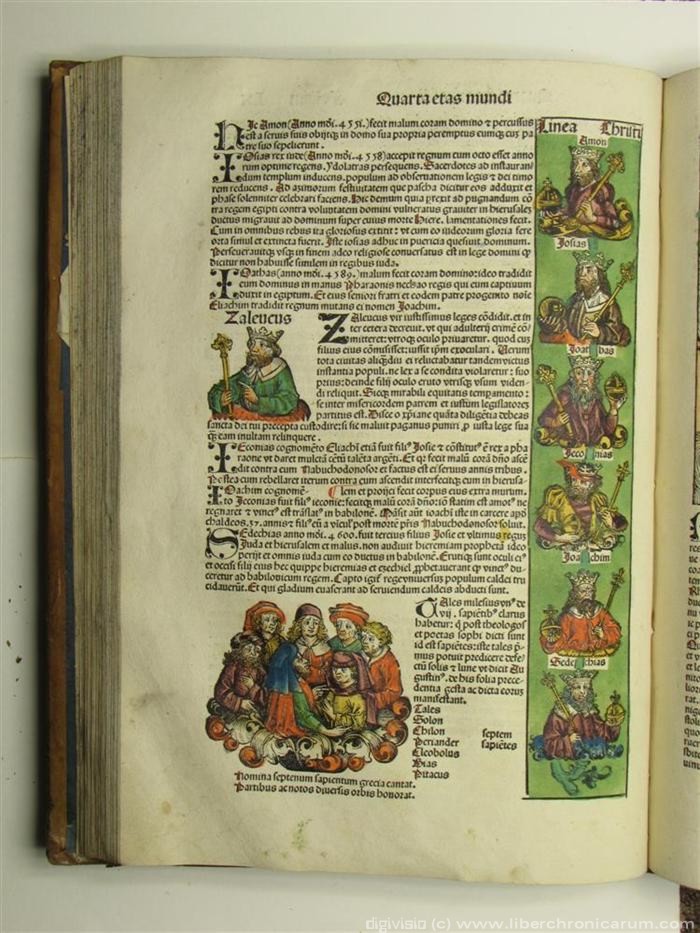 Quarta etas mundi
Hic Amon (Anno mũdi. 4551.) fecit malum coram domino et percussus
est a seruis suis obijtqꝫ in domo sua propria peremptus eumqꝫ cus pa
tre suo sepelierunt.
IOsias rex iude (Anno mõi. 4558) accepit regnum cum octo esset annorum
rum optime regens. Ydolatras persequens. Sacerdotes ad instaurandum
dum templum inducens, populum ad obseruationem legis et dei timo
rem reducens. Ad azimorum festiuitatem que pascha dicitur eos adduxit et
phase solenniter celebrari faciens. Hic demum quia prexit ad pugnandum cõ
tra regem egipti contra voluntatem domini vulneratus grauiter in hierusalẽ
ductus migrauit ad dominum super cuius morte Hiere. lamentationes fecit.
Cum in omnibus rebus ita gloriosus extitit: vt cum eo iudeorum gloria fere
orta simul et extincta fuerit. Iste iosias adhuc in puericia quesiuit dominum.
Perseuerauitqꝫ vsqꝫ in finem adeo religiose conuersatus est in lege domini qꝫ
dicitur non habuisse similem in regibus iuda.
IOathas (anno mõi. 4589.) malum fecit coram domino: ideo tradidit
eum dominus in manus Pharaonis nechao regis qui eum captiuum
duxit in egiptum. Et eius seniori fratri et eodem patre progenito noĩe
Eliachim tradidit regnum mutans ei nomen Joachim.
Zaleucus
ZAleucus vir iustissimus leges cõdidit. et in
ter cetera decreuit. vt qui adulterij crimẽ cõ
mitteret: vtroqꝫ oculo priuaretur. quod cũ
filius eius cõmisisset: iussit ipm exoculari. Uerum
tota ciuitas aliqdiu ei reluctabatur tandem victus
instantia populi. ne lex a se condita violaretur: suo
prius: deinde filij oculo eruto vtrisqꝫ vsum viden
di reliquit. Sicqꝫ mirabili equitatis tempamento:
se inter misericordem patrem et iustum legislatorẽ
partitus est. Disce o xpiane quãta diligẽtia debeas
sancta dei tui precepta custodire: si sic maluit paganus puniri
IEconias cognomẽto Eliachĩ etiã fuit filiꝰ Josie et cõstitutꝰ ẽ rex a pha
raone vt daret mulctã cẽtũ talẽta argẽti. Et qꝫ fecit malũ corã dño ascẽ
dit contra eum Nabuchodonosor et factus est ei seruus annis tribus.
Postea cum rebellaret iterum contra eum ascendit interfecitqꝫ eum in hierusa
IOachim cognomẽ-
lem et proijci fecit corpus eius extra murum.
to Jeconias fuit filiꝰ ieconie: fecitqꝫ malũ corã dño: iõ statim est amotꝰ ne
regnaret et vinctꝰ est trãslatꝰ in babilonẽ. Mãsit aũt ioachĩ iste in carcere apõ
chaldeos. 37. annis et filiꝰ
SEdechias anno mõi. 4600. fuit tercius filius Josie et vltimus regũ
Juda et hierusalem et malus. non audiuit hieremiam prophetã ideo
perijt et omnis iuda cum eo ductus in babilonẽ. Erutiqꝫ sunt oculi eiꝰ
et occisi filij eius hec quippe hieremias et ezechiel
ceretur ad babilonicum regem. Capto igiꝭ
cidauerũt. Et qui gladium euaserant ad seruiendum caldeis abducti sunt.
TAles milesius vnꝰ de
vij. sapiẽtibꝰ clarus
habetur: qꝫ post theologos
et poetas sophi dicti sunt
id est sapiẽtes: iste tales p̃
mus potuit predicere defe
ctũ solis et lune vt dicit Au
gustinꝰ. de his folia prece
dentia gesta ac dicta eorũ
manifestant.
Tales
Solon
Chilon septem
Periander sapiẽtes
Cleobolus
Bias
Pitacus
Nomina septenum sapientum grecia cantat.
Partibus ac notos diuersis orbis honorat.
Linea Christi
Amon
Josias
Joathas
Jeconias
Joachim
Sedechias
digivisio (c) www.liberchronicarum.com